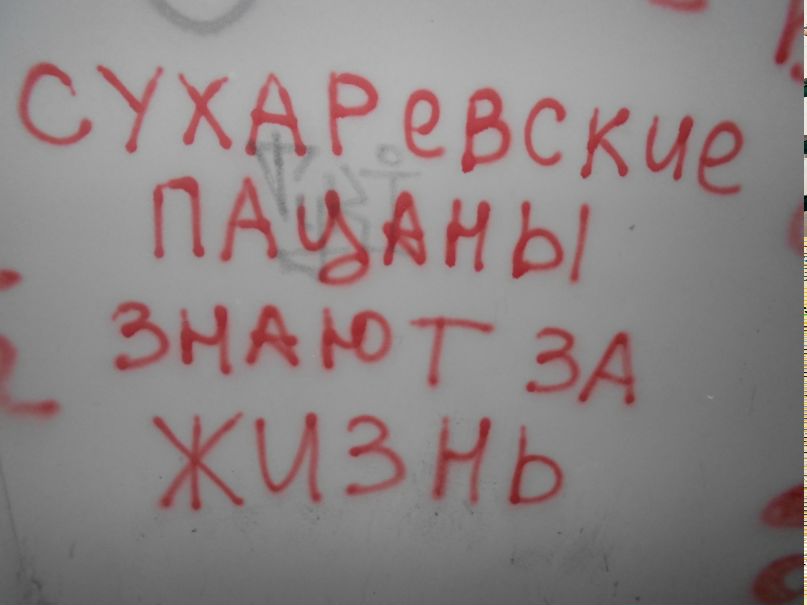 СУХАРеВСКиe
ПАЦАНЫ
ЗНАЮТ ЗА
ЖИЗНЬ